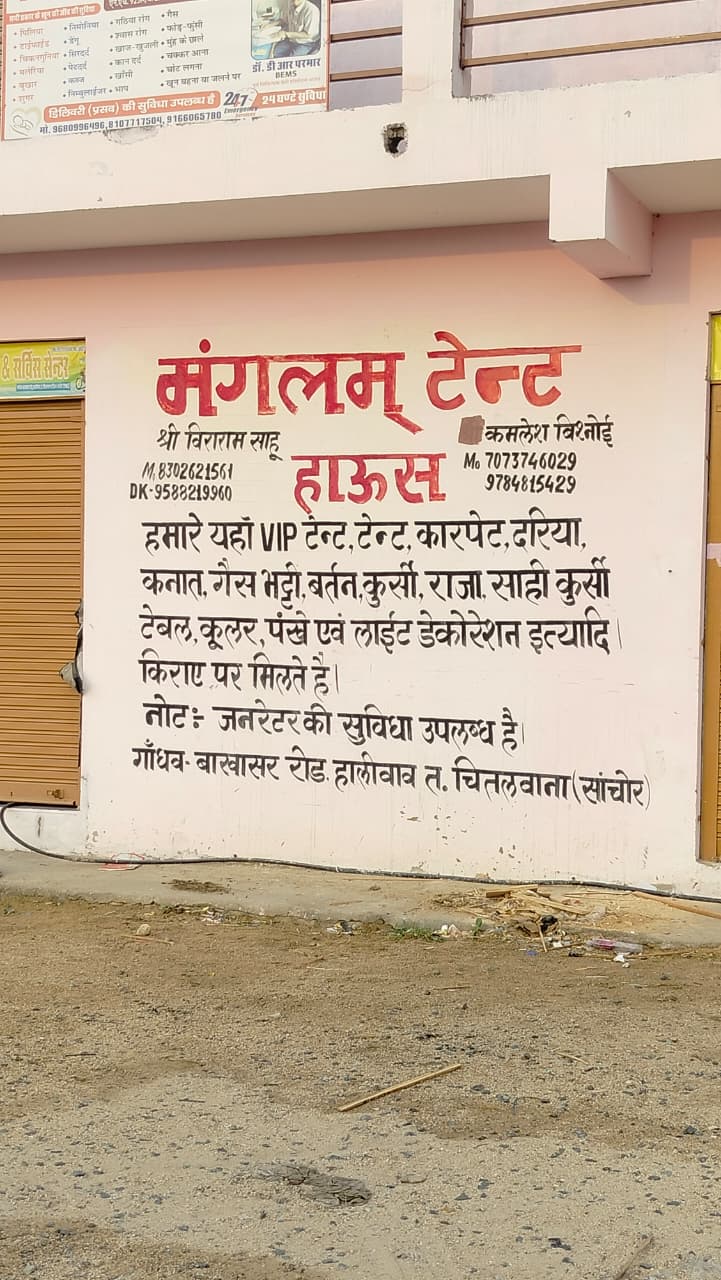 • पिलिया
• टाईफाईड
• चिकनगुनिया
• मलेरिया
• बुखार
• शुगर
• निमोनिया
• डेंगू
• सिरदर्द
• पेटदर्द
• कब्ज
• निम्बुलाईजर
• गठिया रोग
• श्वास रोग
• खाज-खुजली
• कान दर्द
• खाँसी
• भाप
• गैस
• फोड़े-फुंसी
• मुंह के छाले
• चक्कर आना
• चोट लगना
• खून बहना या जलने पर
डॉ. डी आर परमार
BEMS
डिलिवरी (प्रसव) की सुविधा उपलब्ध है
24x7 Emergency
२४ घण्टे सुविधा
मो. 9680996496, 8107717504, 9166065780
& सर्विस सेन्टर
मंगलम् टेन्ट
हाऊस
श्री विराराम साहू
M. 8302621561
DK-9588219960
कमलेश विश्नोई
Mo 7073746029
9784815429
हमारे यहाँ VIP टेन्ट, टेन्ट, कारपेट, दरिया,
कनात, गैस भट्टी, बर्तन, कुर्सी, राजा, साही कुर्सी
टेबल, कूलर, पंखे एवं लाईट डेकोरेशन इत्यादि।
किराए पर मिलते है।
नोट:- जनरेटर की सुविधा उपलब्ध है।
गाँधव- बाखासर रोड. हालीवाव त. चितलवाना (सांचोर)